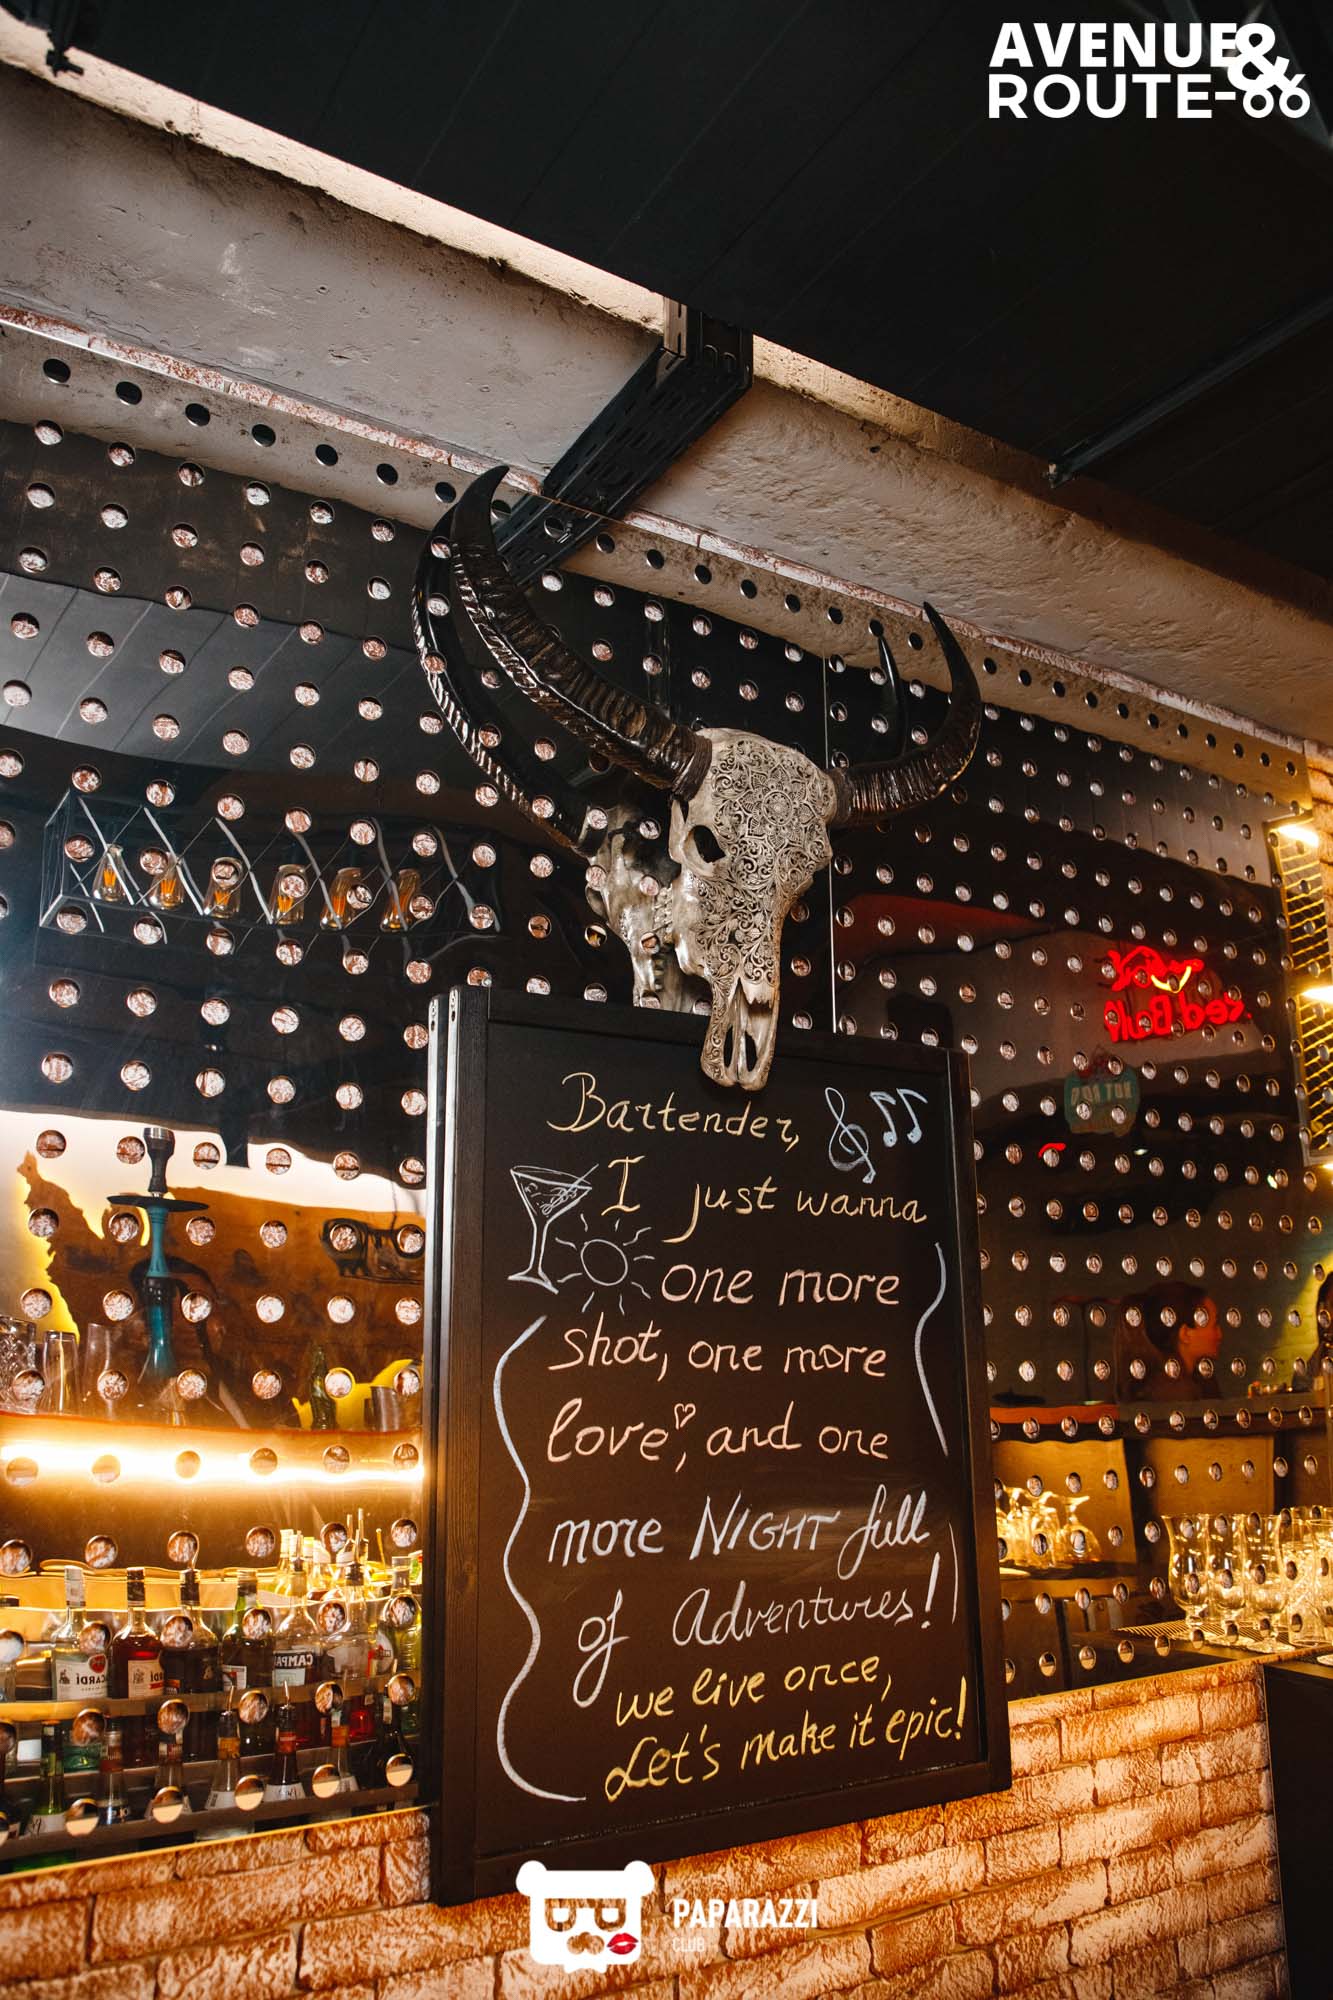 AVENUE&
ROUTE-66
Bartender,
I just wanna
one more
shot, one more
love, and one
more NIGHT full
of Adventures!
we live once,
Let's make it epic!
Red Bull
HOT DOG
CAMPA
PAPARAZZI
CLUB